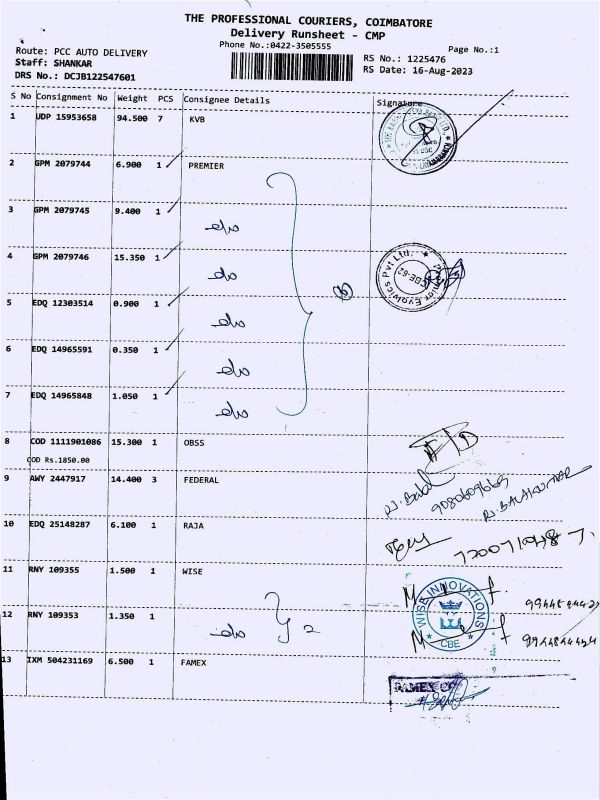 THE PROFESSIONAL COURIERS, COIMBATORE
Delivery Runsheet - CMP
Phone No.:0422-3505555
Page No.:1
Route: PCC AUTO DELIVERY
Staff: SHANKAR
DRS No.: DCJB122547601
RS No.: 1225476
RS Date: 16-Aug-2023
S No Consignment No Weight PCS Consignee Details Signature
1 UDP 15953658 94.500 7 KVB
2 GPM 2079744 6.900 1 PREMIER
3 GPM 2079745 9.400 1 do
4 GPM 2079746 15.350 1 do
Premier Evolvics Pvt Ltd. CBE-62
5 EDQ 12303514 0.900 1 do
6 EDQ 14965591 0.350 1 do
7 EDQ 14965848 1.050 1 do
8 COD 1111901086 15.300 1 OBSS
COD Rs.1850.00
9 AWY 2447917 14.400 3 FEDERAL
10 EDQ 25148287 6.100 1 RAJA
11 RNY 109355 1.500 1 WISE
WISE INNOVATIONS CBE
12 RNY 109353 1.350 1 do 2
13 IXM 504231169 6.500 1 FAMEX